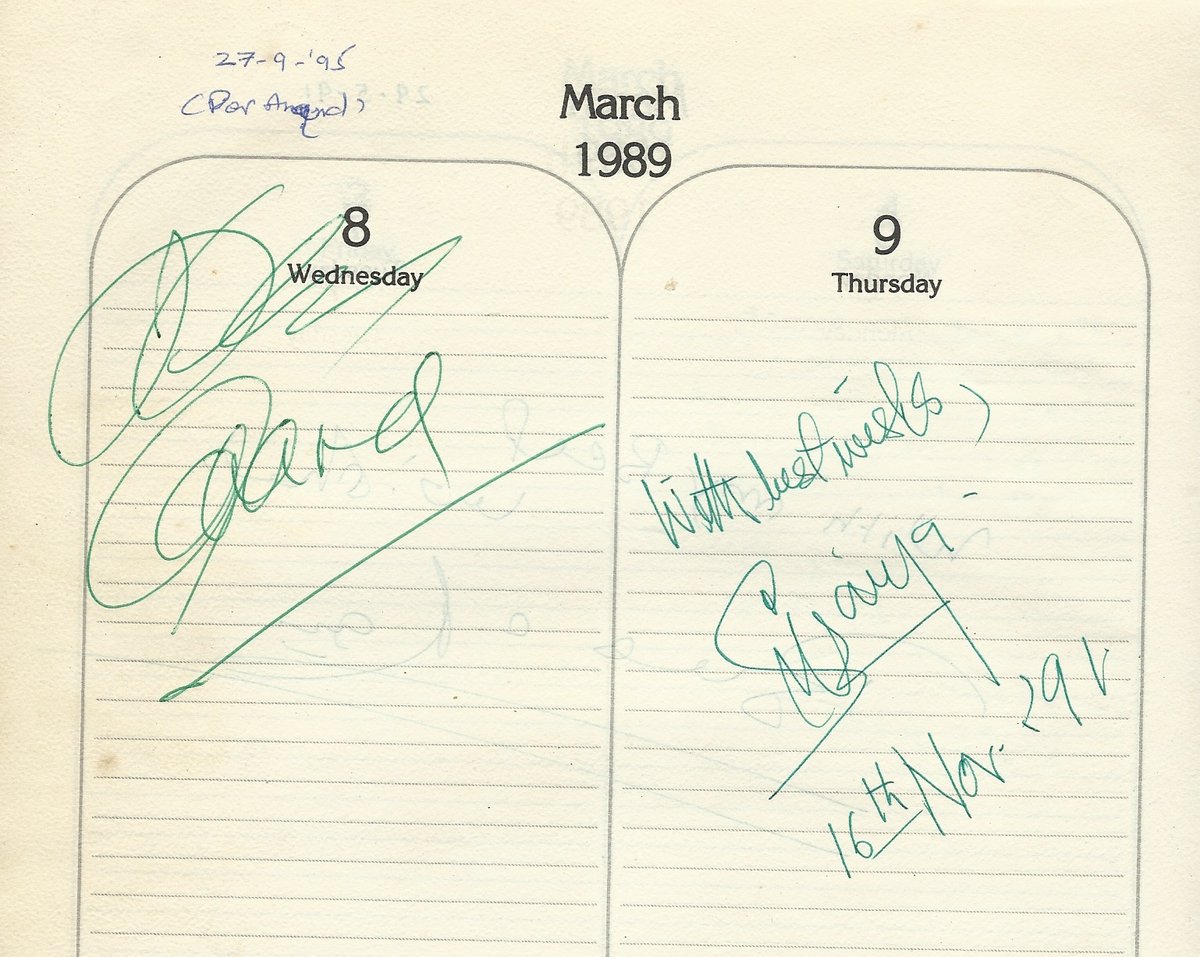 27-9-'95
March
1989
8
Wednesday
Dev
Anand
9
Thursday
With best wishes,
16th Nov. '91